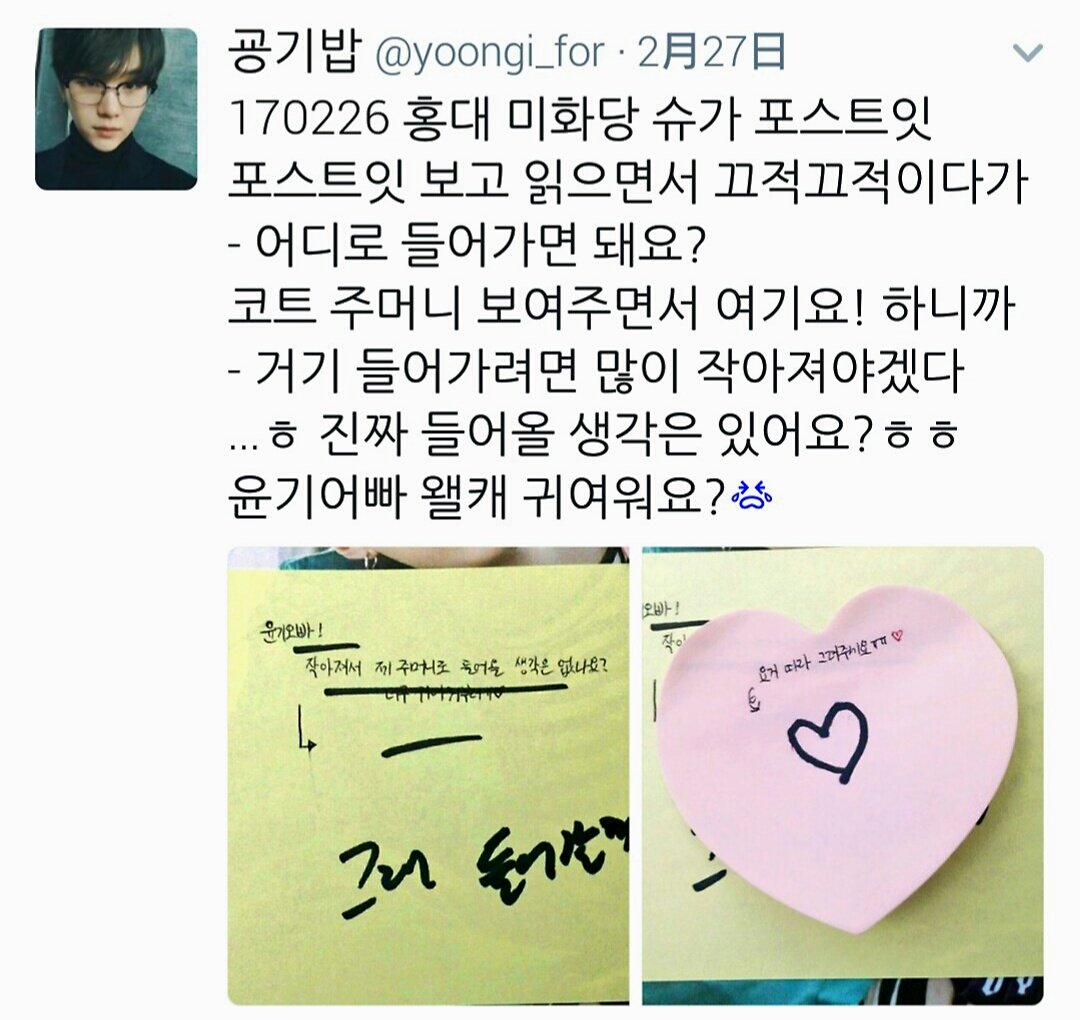 굥기밥 @yoongi_for · 2月27日
170226 홍대 미화당 슈가 포스트잇
포스트잇 보고 읽으면서 끄적끄적이다가
- 어디로 들어가면 돼요?
코트 주머니 보여주면서 여기요! 하니까
- 거기 들어가려면 많이 작아져야겠다
...ㅎ 진짜 들어올 생각은 있어요?ㅎㅎ
윤기어빠 왤캐 귀여워요?😭
윤기오빠!
작아져서 제 주머니로 들어올 생각은 없나요?
그래 들어갈게
오빠!
작아
요거 따라 그려주세요ㅠㅠ♡